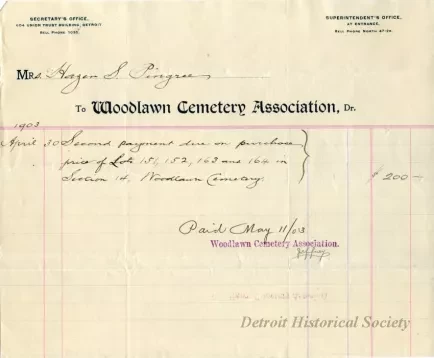 SECRETARY'S OFFICE,
604 UNION TRUST BUILDING, DETROIT
BELL PHONE 1030.
SUPERINTENDENT'S OFFICE,
AT ENTRANCE.
BELL PHONE NORTH
Mrs. Hazen S. Pingree
To Woodlawn Cemetery Association, Dr.
1903
April 30 Second payment due on purchase
price of Lots 151, 152, 163 and 164 in
Section 14, Woodlawn Cemetery. $200—
Paid May 11/03
Woodlawn Cemetery Association.
Detroit Historical Society